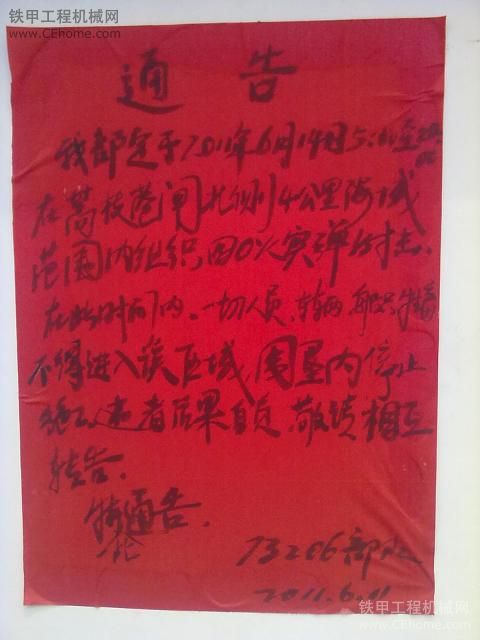 铁甲工程机械网
www.CEhome.com
通告
我部定于2011年6月14日5:00至20:00
在蒿枝港闸北侧4公里海域
范围内组织四〇火实弹射击.
在此时间内、一切人员、车辆、船只、牲畜
不得进入该区域,围垦内停止
施工,违者后果自负,敬请相互
转告.
特通告.
73206部队
2011.6.11
铁甲工程机械网
www.CEhome.com